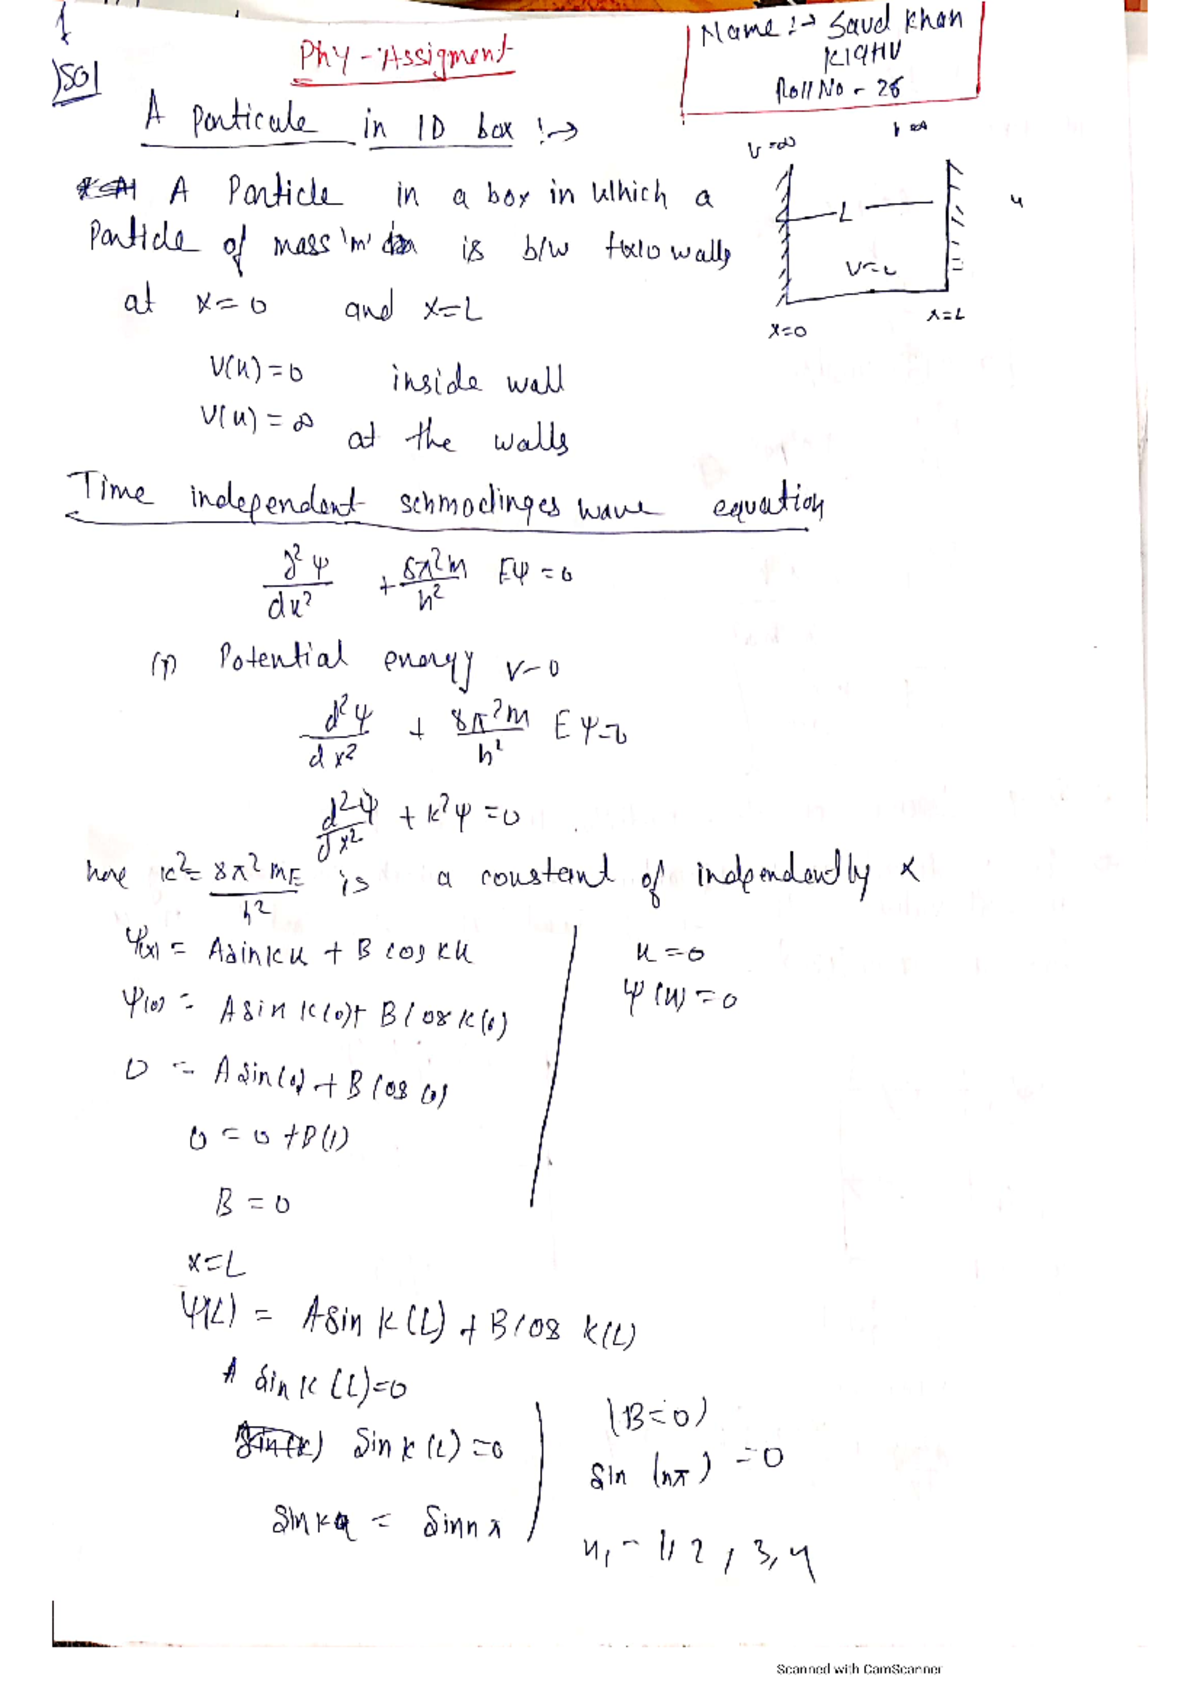 1
)Sol
Phy - Assigment
Name :→ Saud Khan
K19HV
Roll No - 26
A Particale in 1D box :→
A Particle in a box in which a
Particle of mass 'm' is b/w two walls
at x=0 and x=L
V=∞
L
V=
x=0
x=L
V(x)=0 inside wall
V(x)=∞ at the walls
Time independent schrodinges wave equation
d²ψ/dx² + 8π²m/h² Eψ=0
Potential energy V=0
d²ψ/dx² + 8π²m/h² Eψ=0
d²ψ/dx² + k²ψ=0
here k²= 8π²mE/h² is a constant of independently x
ψ(x) = A sin kx + B cos kx
x=0
ψ(0) = A sin k(0)+ B cos k(0)
ψ(x)=0
0 = A sin(0) + B cos(0)
0 = 0 + B(1)
B = 0
x=L
ψ(L) = A sin k(L) + B cos k(L)
A sin k (L)=0
(B=0)
sin k (L)=0
sin (nπ) =0
sin ka = sin nπ
n, = 1, 2, 3, 4
Scanned with CamScanner